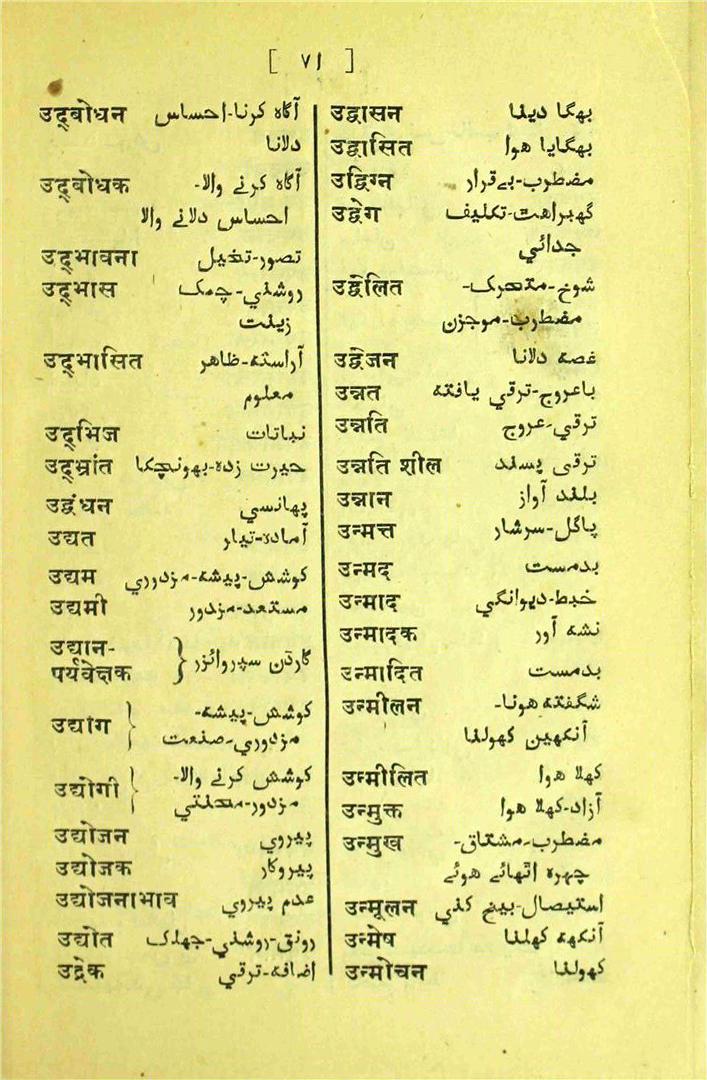 [ ۷۱ ]
उद्‌बोधन آگاه کرنا-احساس
دلانا
उद्‌बोधक آگاه کرنے والا-
احساس دلانے والا
उद्‌भावना تصور-تخیل
उद्‌भास روشنی-چمک
زینت
उद्‌भासित آراسته-ظاهر
معلوم
उद्‌भिज نباتات
उद्‌भ्रांत حیرت زده-بهونچکا
उद्वंधन پهانسی
उद्यत آماده-تیار
उद्यम کوشش-پیشه-مزدوری
उद्यमी مستعد-مزدور
उद्यान-
पर्यवेक्षक } گارڈن سپروائزر
उद्यांग } کوشش-پیشه-
مزدوری-صنعت
उद्योगी } کوشش کرنے والا-
مزدور-محنتی
उद्योजन پیروی
उद्योजक پیروکار
उद्योजनाभाव عدم پیروی
उद्योत رونق-روشنی-جهلک
उद्रेक اضافه-ترقی
उद्वासन بهگا دینا
उद्वासित بهگایا هوا
उद्विग्न مضطرب-بےقرار
उद्वेग گهبراهت-تکلیف
جدائی
उद्वेलित شوخ-متحرک-
مضطرب-موجزن
उद्वेजन غصه دلانا
उन्नत باعروج-ترقی یافته
उन्नति ترقی-عروج
उन्नति शील ترقی پسند
उन्नान بلند آواز
उन्मत्त پاگل-سرشار
उन्मद بدمست
उन्माद خبط-دیوانگی
उन्मादक نشه آور
उन्मादित بدمست
उन्मीलन شگفته هونا-
آنکهیں کهولنا
उन्मीलित کهلا هوا
उन्मुक्त آزاد-کهلا هوا
उन्मुख مضطرب-مشتاق-
چهره اٹهائے هوئے
उन्मूलन استیصال-بیخ کنی
उन्मेष آنکهه کهلنا
उन्मोचन کهولنا